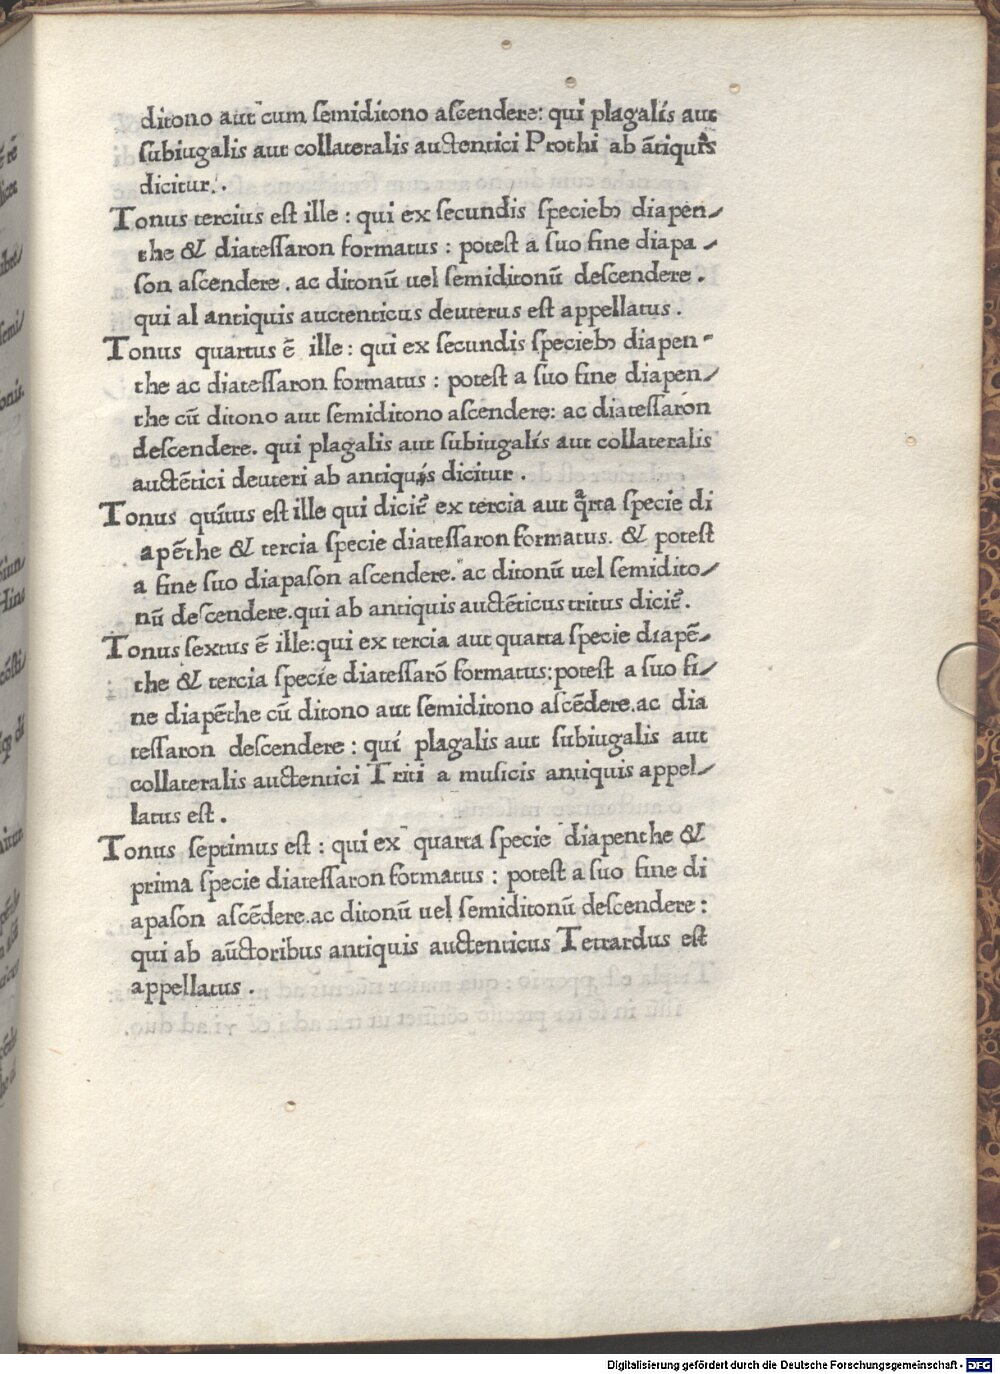 ditono aut cum semiditono ascendere: qui plagalis aut
subiugalis aut collateralis auctentici Prothi ab ātiquis
dicitur.
Tonus tercius est ille : qui ex secundis specieb₉ diapen⸗
the & diatessaron formatus : potest a suo fine diapa⸗
son ascendere . ac ditonū uel semiditonū descendere .
qui al antiquis auctenticus deuterus est appellatus .
Tonus quartus ē ille : qui ex secundis specieb₉ diapen⸗
the ac diatessaron formatus : potest a suo fine diapen⸗
the cū ditono aut semiditono ascendere: ac diatessaron
descendere. qui plagalis aut subiugalis aut collateralis
auctētici deuteri ab antiquis dicitur .
Tonus quītus est ille qui dicit᷑ ex tercia aut qᷓrta specie di
apēthe & tercia specie diatessaron formatus. & potest
a fine suo diapason ascendere. ac ditonū uel semidito⸗
nū descendere.qui ab antiquis auctēticus tritus dicit᷑.
Tonus sextus ē ille:qui ex tercia aut quarta specie diapē⸗
the & tercia specie diatessarō formatus:potest a suo fi⸗
ne diapēthe cū ditono aut semiditono ascēdere.ac dia
tessaron descendere : qui plagalis aut subiugalis aut
collateralis auctentici Triti a musicis antiquis appel⸗
latus est .
Tonus septimus est : qui ex quarta specie diapenthe &
prima specie diatessaron formatus : potest a suo fine di
apason ascēdere.ac ditonū uel semiditonū descendere :
qui ab auctoribus antiquis auctenticus Tetrardus est
appellatus .
Digitalisierung gefördert durch die Deutsche Forschungsgemeinschaft - DFG